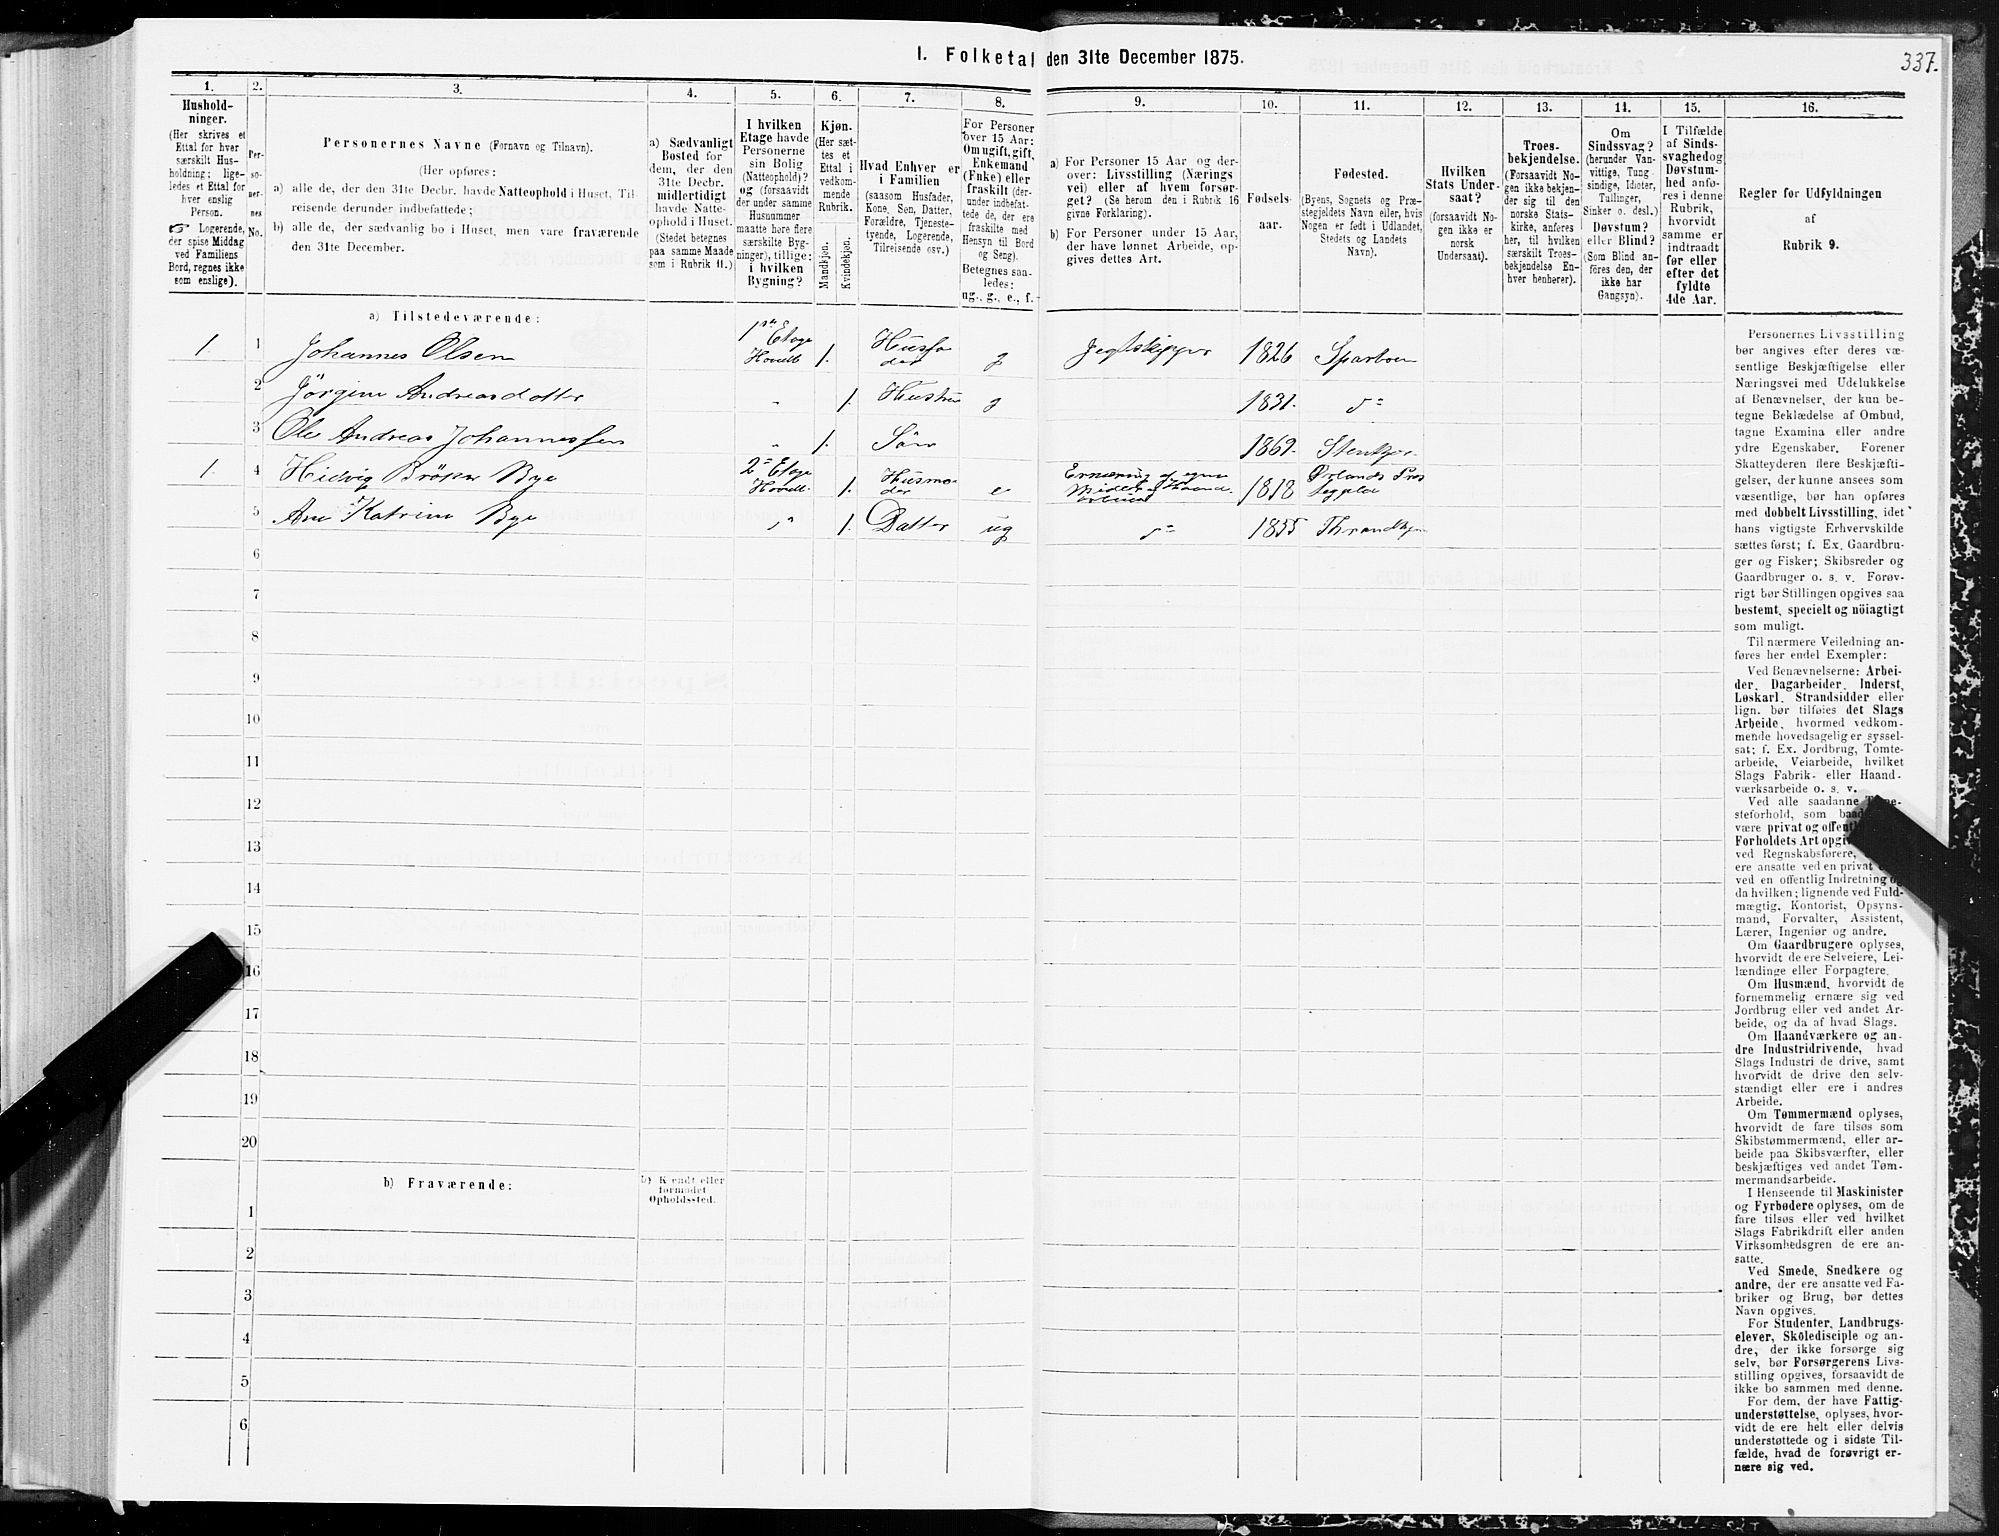 I. Folketal den 31te December 1875.
337.
1.
Hushold-
ninger.
(Her skrives et
Ettal for hver
særskilt Hus-
holdning; lige-
ledes et Ettal for
hver enslig
Person.
☞ Logerende,
der spise Middag
ved Familiens
Bord, regnes ikke
som enslige).
2.
Per-
so-
ner-
nes
No.
3.
Personernes Navne (Fornavn og Tilnavn).
(Her opføres:
a) alle de, der den 31te Decbr. havde Natteophold i Huset, Til-
reisende derunder indbefattede;
b) alle de, der sædvanlig bo i Huset, men vare fraværende
den 31te December.
4.
a) Sædvanligt
Bosted for
dem, der den
31te Decbr.
midlertidigt
havde Natte-
ophold i Huset.
(Stedet betegnes
paa samme Maade
som i Rubrik 11.)
5.
I hvilken
Etage havde
Personerne
sin Bolig
(Natteophold)?
og (forsaavidt
der under samme
Husnummer
maatte høre flere
særskilte Byg-
ninger), tillige:
i hvilken
Bygning?
6.
Kjøn.
(Her sæt-
tes et
Ettal i
vedkom-
mende
Rubrik.
Mandkjøn.
Kvindekjøn.
7.
Hvad Enhver er
i Familien
(saasom Husfader,
Kone, Søn, Datter,
Forældre, Tjeneste-
tyende, Logerende,
Tilreisende osv.)
8.
For Personer
over 15 Aar:
Om ugift, gift,
Enkemand
(Enke) eller
fraskilt (der-
under indbefat-
tede de, der ere
fraskilte med
Hensyn til Bord
og Seng).
Betegnes saa-
ledes:
ug., g., e., f.
9.
a) For Personer 15 Aar og der-
over: Livsstilling (Nærings
vei) eller af hvem forsør-
get? (Se herom den i Rubrik 16
givne Forklaring).
b) For Personer under 15 Aar,
der have lønnet Arbeide, op-
gives dettes Art.
10.
Fødsels-
aar.
11.
Fødested.
(Byens, Sognets og Præ-
stegjeldets Navn eller, hvis
Nogen er født i Udlandet,
Stedets og Landets
Navn).
12.
Hvilken
Stats Under-
saat?
(forsaavidt No-
gen ikke er
norsk
Undersaat).
13.
Troes-
bekjendelse.
(Forsaavidt No-
gen ikke bekjen-
der sig til den
norske Stats-
kirke, anføres
her, til hvilken
særskilt Troes-
bekjendelse En-
hver henhører).
14.
Om
Sindssvag?
(herunder Van-
vittige, Tung
sindige, Idioter,
Tullinger,
Sinker o. desl.)
Døvstum?
eller Blind?
(Som Blind an-
føres den, der
ikke har
Gangsyn).
15.
I Tilfælde
af Sinds-
svaghed og
Døvstum-
hed anfø-
res i denne
Rubrik,
hvorvidt
samme er
indtraadt
før eller
efter det
fyldte
4de Aar.
16.
Regler for Udfyldningen
af
Rubrik 9.
a) Tilstedeværende:
1. 1 Johannes Olsen 1ste Etage Hovedb 1. Husfader g Jegtskipper 1826 Sparboen
2 Jörgine Andreasdatter " 1. Hustru g 1831. do
3 Ole Andreas Johannessen " 1. Sön 1869. Stenkjær
1. 4 Hedvig Bye 2n Etage Hovedb. 1. Husmoder e Ernæring af egne Midler og Haandarbeide 1818 Ørlands
5 Ane Katrine Bye " 1. Datter ug do 1855 Throndhjem
6
7
8
9
10
11
12
13
14
15
16
17
18
19
20
b) Fraværende:
b) Kjendt eller
formodet
Opholdssted.
1
2
3
4
5
6
Personernes Livsstilling
bør angives efter deres væ-
sentlige Beskjæftigelse eller
Næringsvei med Udelukkelse
af Benævnelser, der kun be-
tegne Beklædelse af Ombud,
tagne Examina eller andre
ydre Egenskaber. Forener
Skatteyderen flere Beskjæfti-
gelser, der kunne ansees som
væsentlige, bør han opføres
med dobbelt Livsstilling, idet
hans vigtigste Erhvervskilde
sættes først; f. Ex. Gaardbru-
ger og Fisker; Skibsreder og
Gaardbruger o. s. v. Forøv-
rigt bør Stillingen opgives saa
bestemt, specielt og nöiagtigt
som muligt.
Til nærmere Veiledning an-
føres her endel Exempler:
Ved Benævnelserne: Arbei-
der, Dagarbeider, Inderst,
Løskarl, Strandsidder eller
lign. bør tilføies det Slags
Arbeide, hvormed vedkom-
mende hovedsagelig er syssel-
sat; f. Ex. Jordbrug, Tomte-
arbeide, Veiarbeide, hvilket
Slags Fabrik- eller Haand-
værksarbeide o. s. v.
Ved alle saadanne
steforhold, som
være privat og
Forholdets Art
ved Regnskabsførere,
ere ansatte ved en privat
ved en offentlig Indretning og
da hvilken; lignende ved Fuld-
mægtig, Kontorist, Opsyns-
mand, Forvalter, Assistent,
Lærer, Ingeniør og andre.
Om Gaardbrugere oplyses,
hvorvidt de ere Selveiere, Lei-
lændinge eller Forpagtere.
Om Husmænd, hvorvidt de
fornemmelig ernære sig ved
Jordbrug eller ved andet Ar-
beide, og da af hvad Slags.
Om Haandværkere og an-
dre Industridrivende, hvad
Slags Industri de drive, samt
hvorvidt de drive den selv-
stændigt eller ere i andres
Arbeide.
Om Tømmermænd oplyses,
hvorvidt de fare tilsøs som
Skibstømmermænd, eller ar-
beide paa Skibsværfter, eller
beskjæftiges ved andet Tøm-
mermandsarbeide.
I Henseende til Maskinister
og Fyrbødere oplyses, om de
fare tilsøs eller ved hvilket
Slags Fabrikdrift eller anden
Virksomhedsgren de ere an-
satte.
Ved Smede, Snedkere og
andre, der ere ansatte ved Fa-
briker og Brug, bør dettes
Navn opgives.
For Studenter, Landbrugs-
elever, Skoledisciple og an-
dre, der ikke forsørge sig
selv, bør Forsørgerens Livs-
stilling opgives, forsaavidt de
ikke bo sammen med denne.
For dem, der have Fattig-
understøttelse, oplyses, hvor-
vidt de ere helt eller delvis
understøttede og i sidste Til-
fælde, hvad de forøvrigt er-
nære sig ved.